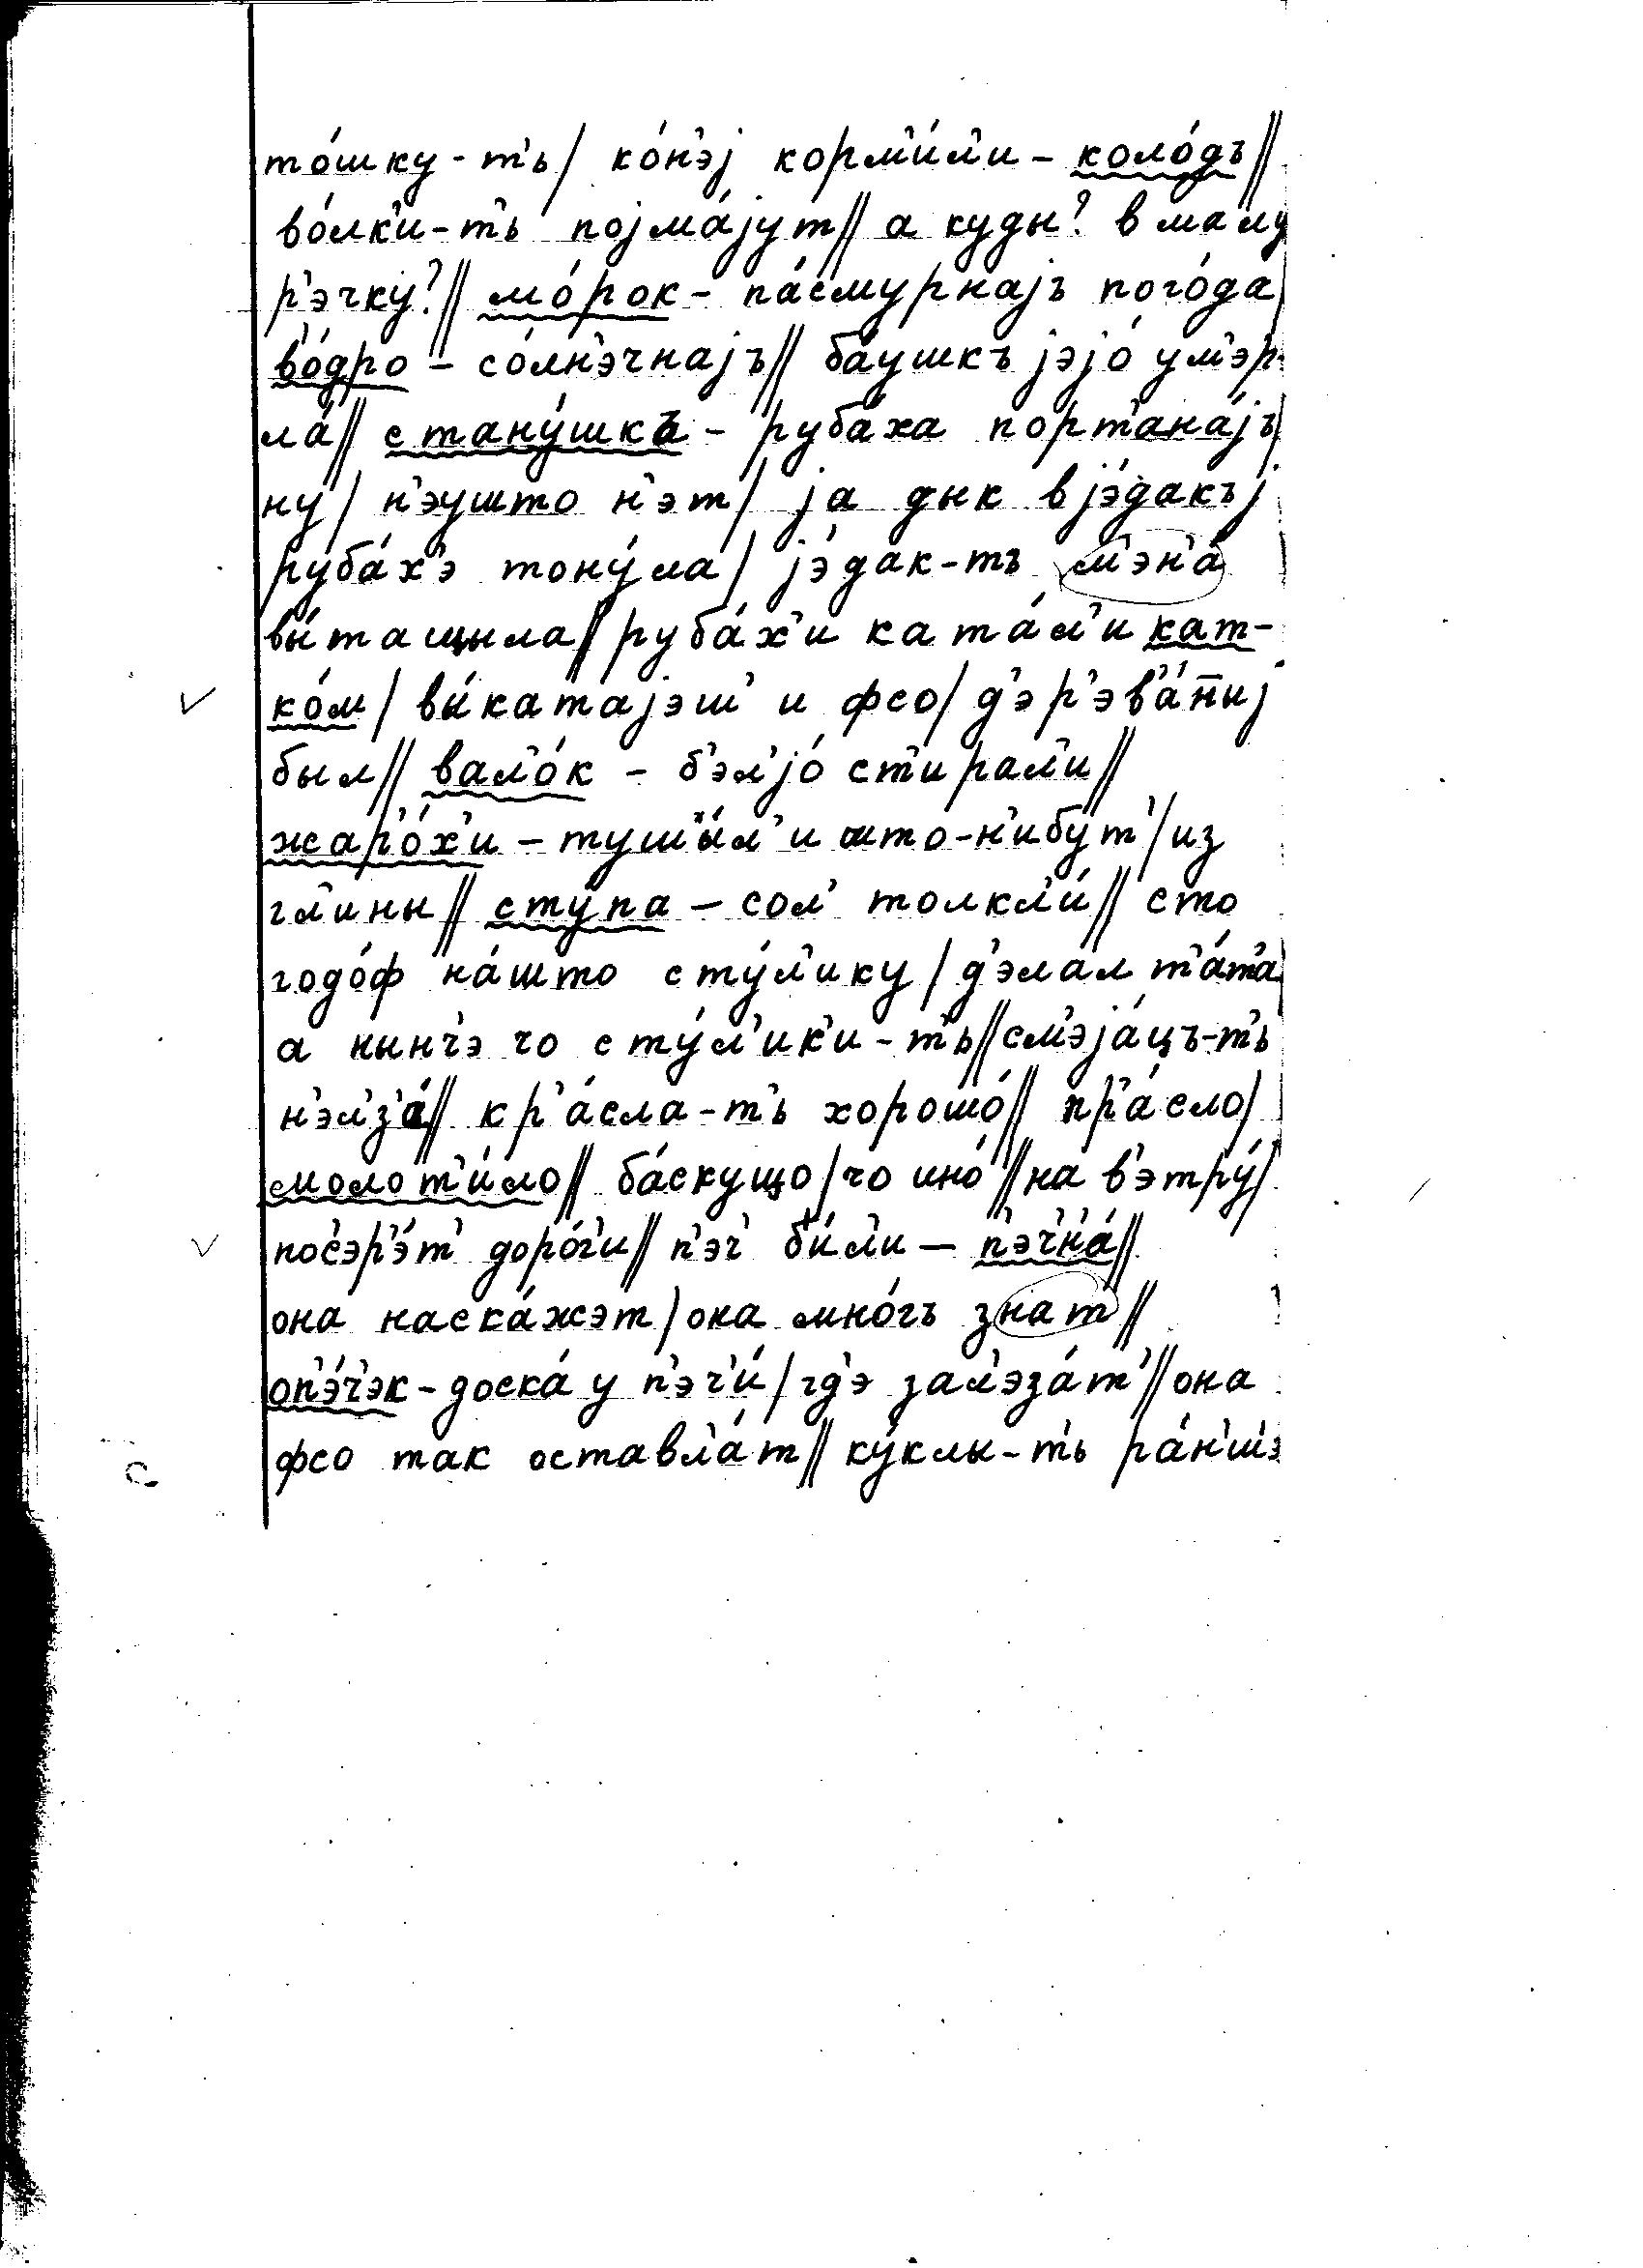 то́шку-т'ь/ ко́н'эj корм'и́л'и – коло́дъ//
во́лк'и-т'ь поjма́jут// а куды? в малу
р'эчку?// мо́рок – па́смурнаjъ пого́да/
в'о́дро – со́лн'эчнаjъ// ба́ушкъ jэjо́ ум'эр-
ла́// стану́шка – руба́ха порт'ана́jъ/
ну/ н'эушто н'эт/ jа дык в jэ́дакъj
руба́х'э тону́ла/ jэ́дак-тъ м'эн'а́
вы́тащыла// руба́х'и ката́л'и кат-
ко́м/ вы́катаjэш' и фсо/ д'эр'эв'а́н̄иj
был// вал'о́к – б'эл'jо́ ст'ирал'и//
жар'о́х'и – туш'ы́л'и што-н'ибу́т'/ из
гл'ины// сту́па – сол' толкл'и́// сто
годо́ф на́што сту́л'ику/ д'элал т'а́т'а/
а нынч'э чо сту́л'ик'и-т'ь// см'эjа́цъ-т'ь
н'эл'з'а́// кр'а́сла-т'ь хорошо́// пр'а́сло/
молот'и́ло// ба́скущо/ чо ино́// на в'этру́/
пос'эр'э́т' доро́г'и// п'эч' би́л'и – п'эч'н'а́//
она наска́жэт/ она мно́гъ знат//
оп'э́ч'эк – доска́ у п'эч'и́/ гд'э зал'эза́т'// она
фсо так оставл'а́т// ку́клы-т'ь ра́н'ш'э